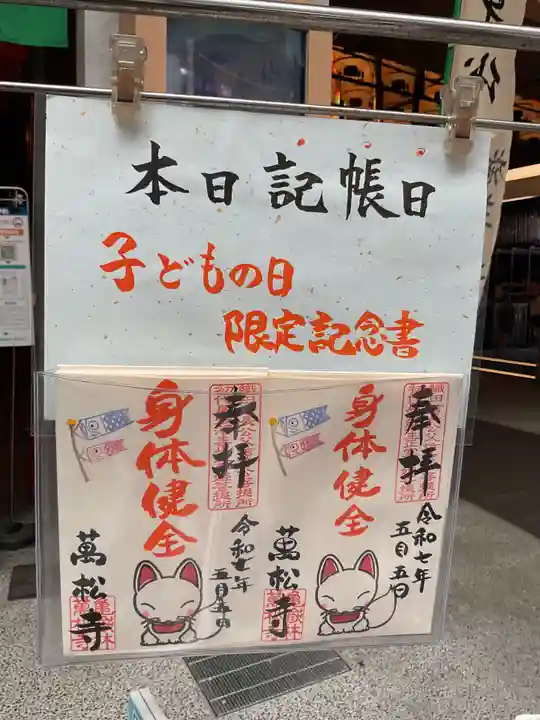 本日記帳日
子どもの日
限定記念書
奉拝
身体健全
令和七年
五月五日
萬松寺
奉拝
身体健全
令和七年
五月五日
萬松寺